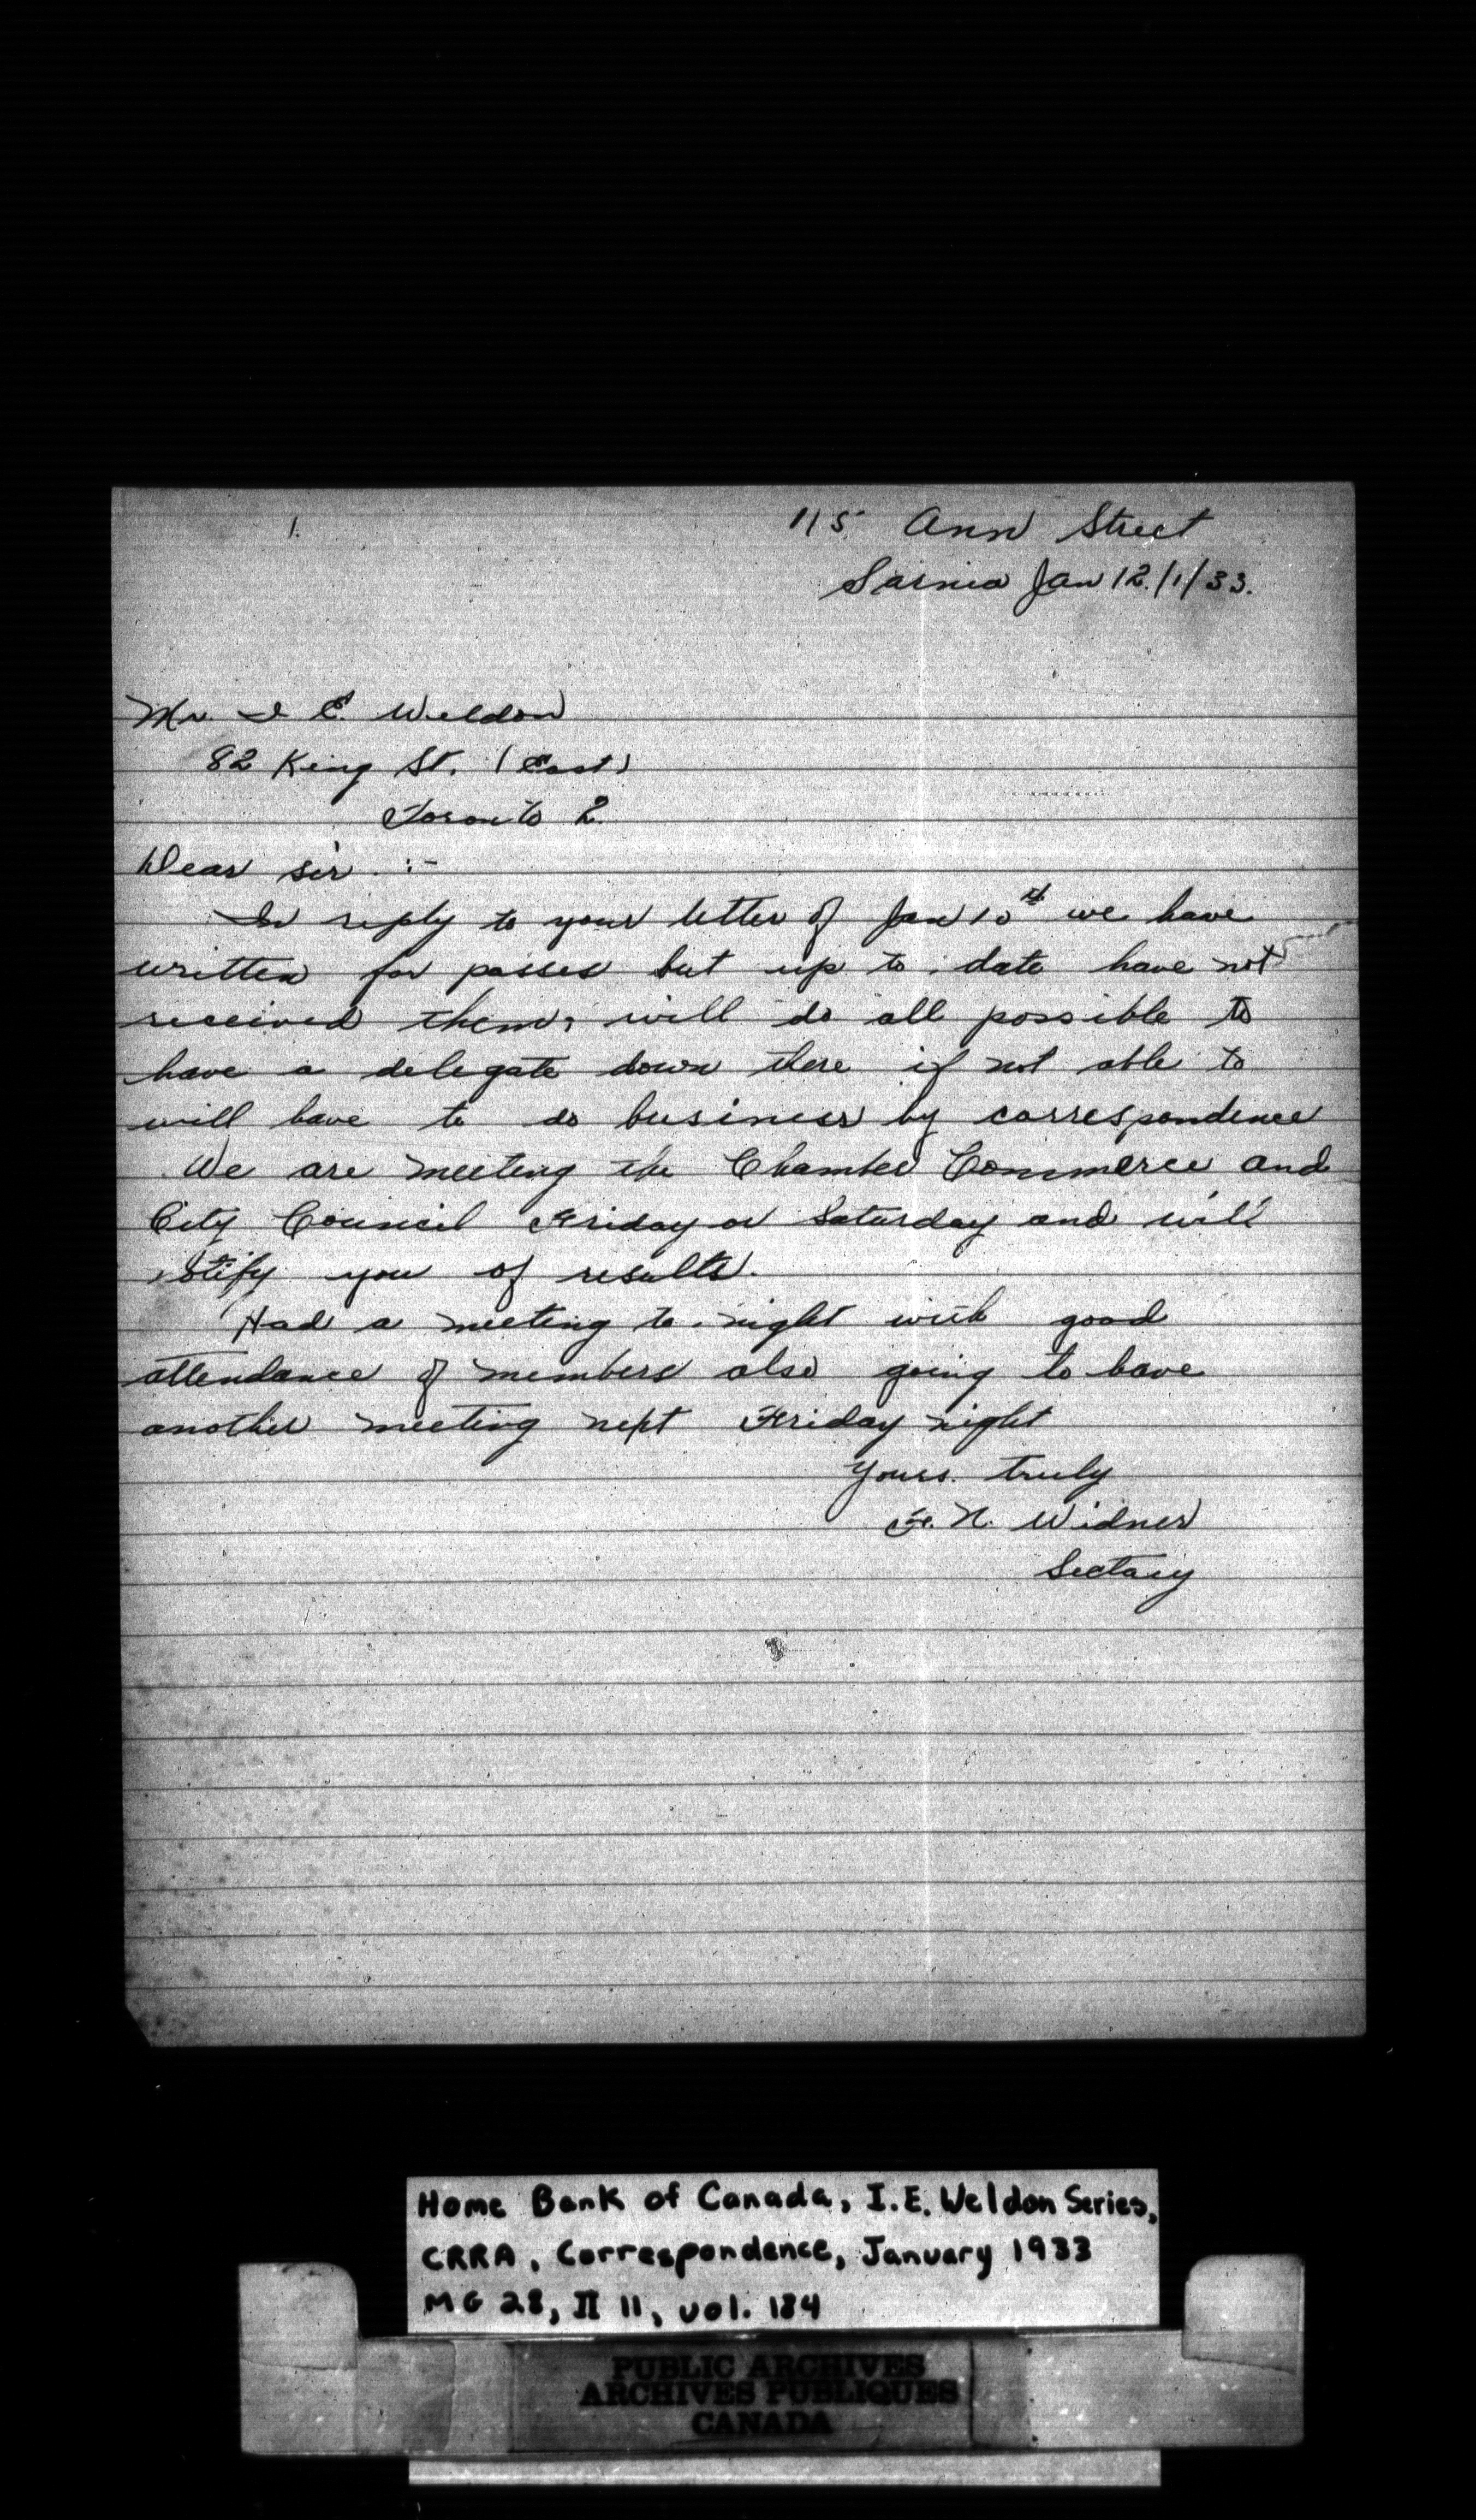 1.
115 Ann Street
Sarnia Jan 12/1/33.
Mr. I E. Weldon
82 King St. (East)
Toronto 2.
Dear sir :-
In reply to your letter of Jan 10th we have
written for passes but up to date have not
received them, will do all possible to
have a delegate down there if not able to
will have to do business by correspondence
We are meeting the Chamber Commerce and
City Council Friday or Saturday and will
notify you of results.
Had a meeting to-night with good
attendance of members also going to have
another meeting next Friday night
Yours truly
F. N. Widner
Sectary
Home Bank of Canada, I.E. Weldon Series,
CRRA, Correspondence, January 1933
MG 28, II 11, vol. 184
PUBLIC ARCHIVES
ARCHIVES PUBLIQUES
CANADA